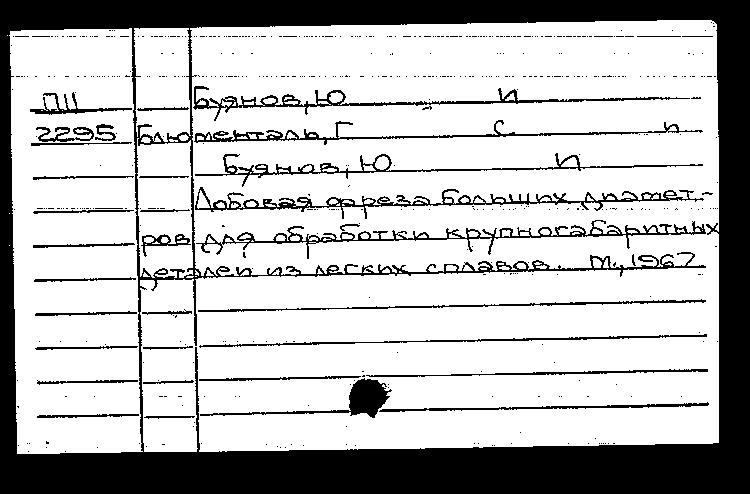 П11 Буянов, Ю И
2295 Блюменталь, Г С п
Буянов, Ю И
Лобовая фреза больших диамет-
ров для обработки крупногабаритных
деталей из легких сплавов. М., 1967